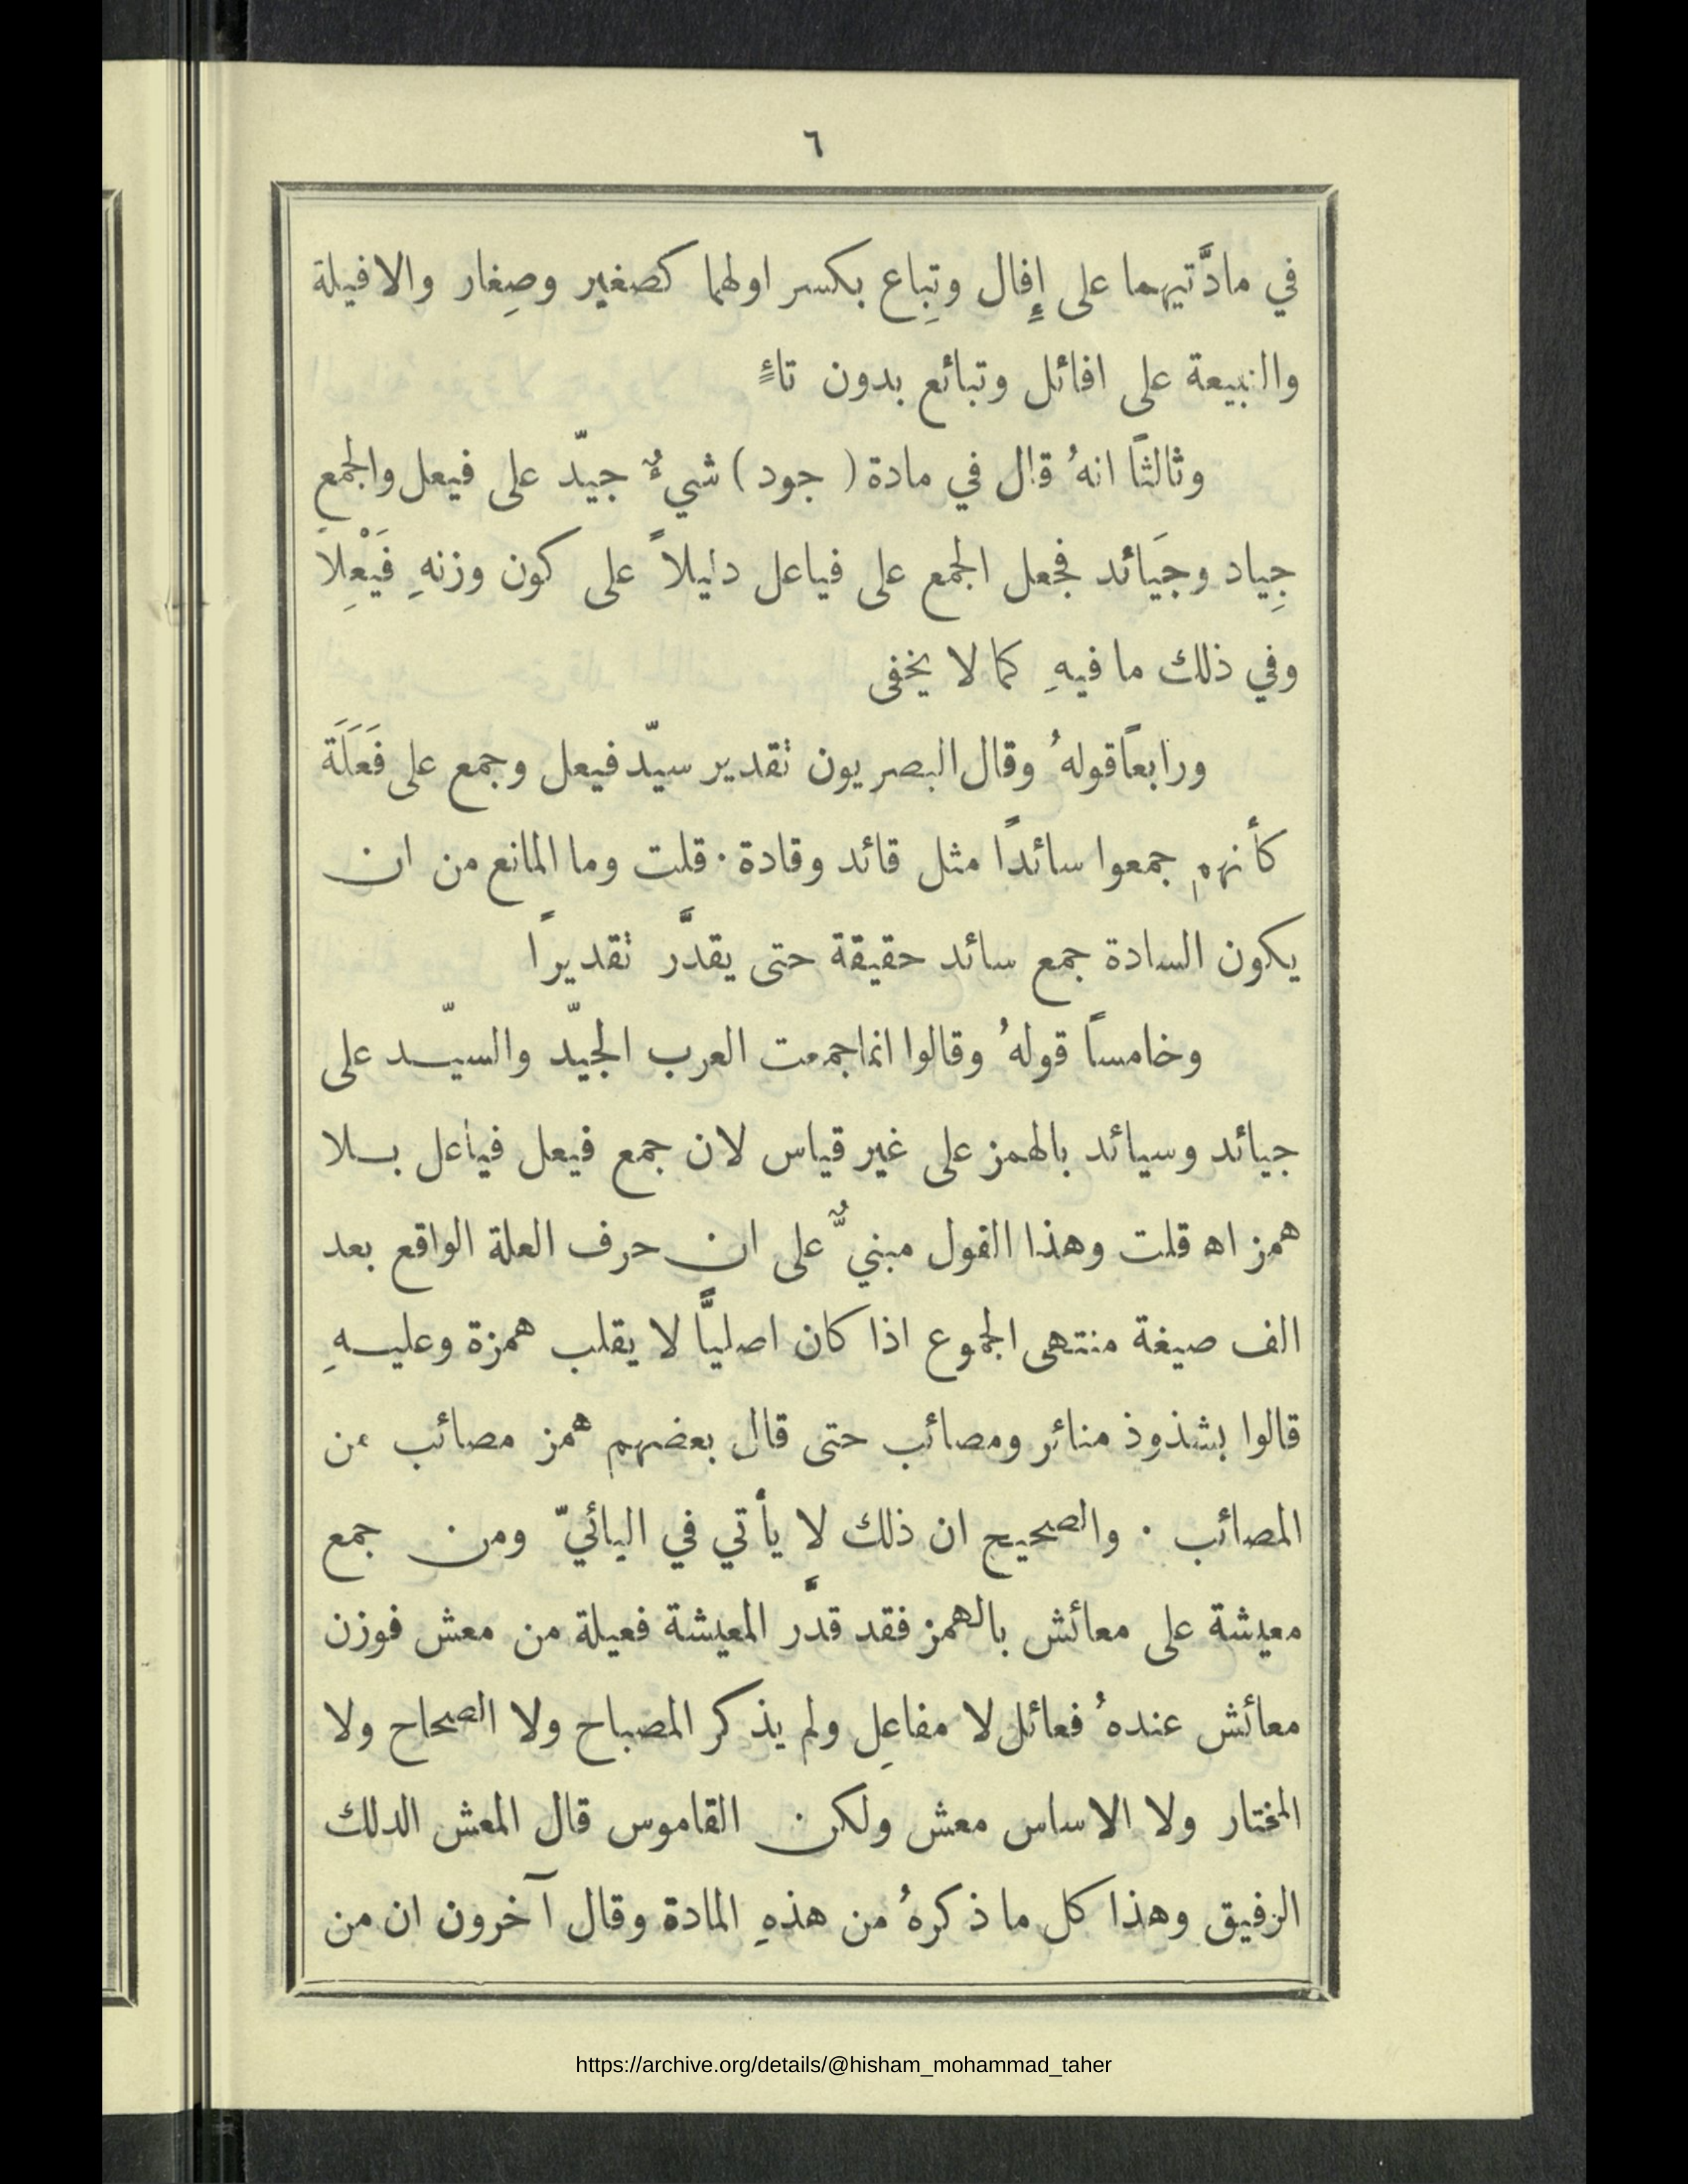 ٦
في مادَّتيهما على إِفال وتِباع بكسر اولهما كصغير وصِغار والافيلة
والتبيعة على افائل وتبائع بدون تاءٍ
وثالثاً انهُ قال في مادة ( جود ) شيءٌ جيّد على فيعل والجمع
جِياد وجَيائد فجعل الجمع على فياعل دليلاً على كون وزنهِ فَيْعِلاً
وفي ذلك ما فيهِ كما لا يخفى
ورابعاً قولهُ وقال البصريون تقدير سيّد فيعل وجمع على فَعَلَة
كأنهم جمعوا سائداً مثل قائد وقادة · قلت وما المانع من ان
يكون السادة جمع سائد حقيقة حتى يقدَّر تقديراً
وخامساً قولهُ وقالوا انما جمعت العرب الجيّد والسيّد على
جيائد وسيائد بالهمز على غير قياس لان جمع فيعل فياعل بلا
همز اه قلت وهذا القول مبنيٌّ على ان حرف العلة الواقع بعد
الف صيغة منتهى الجموع اذا كان اصليًّا لا يقلب همزة وعليهِ
قالوا بشذوذ منائر ومصائب حتى قال بعضهم همز مصائب من
المصائب · والصحيح ان ذلك لا يأتي في اليائيّ ومن جمع
معيشة على معائش بالهمز فقد قدَّر المعيشة فعيلة من معش فوزن
معائش عندهُ فعائل لا مفاعِل ولم يذكر المصباح ولا الصحاح ولا
المختار ولا الاساس معش ولكن القاموس قال المعش الدلك
الرفيق وهذا كل ما ذكرهُ من هذهِ المادة وقال آخرون ان من
https://archive.org/details/@hisham_mohammad_taher